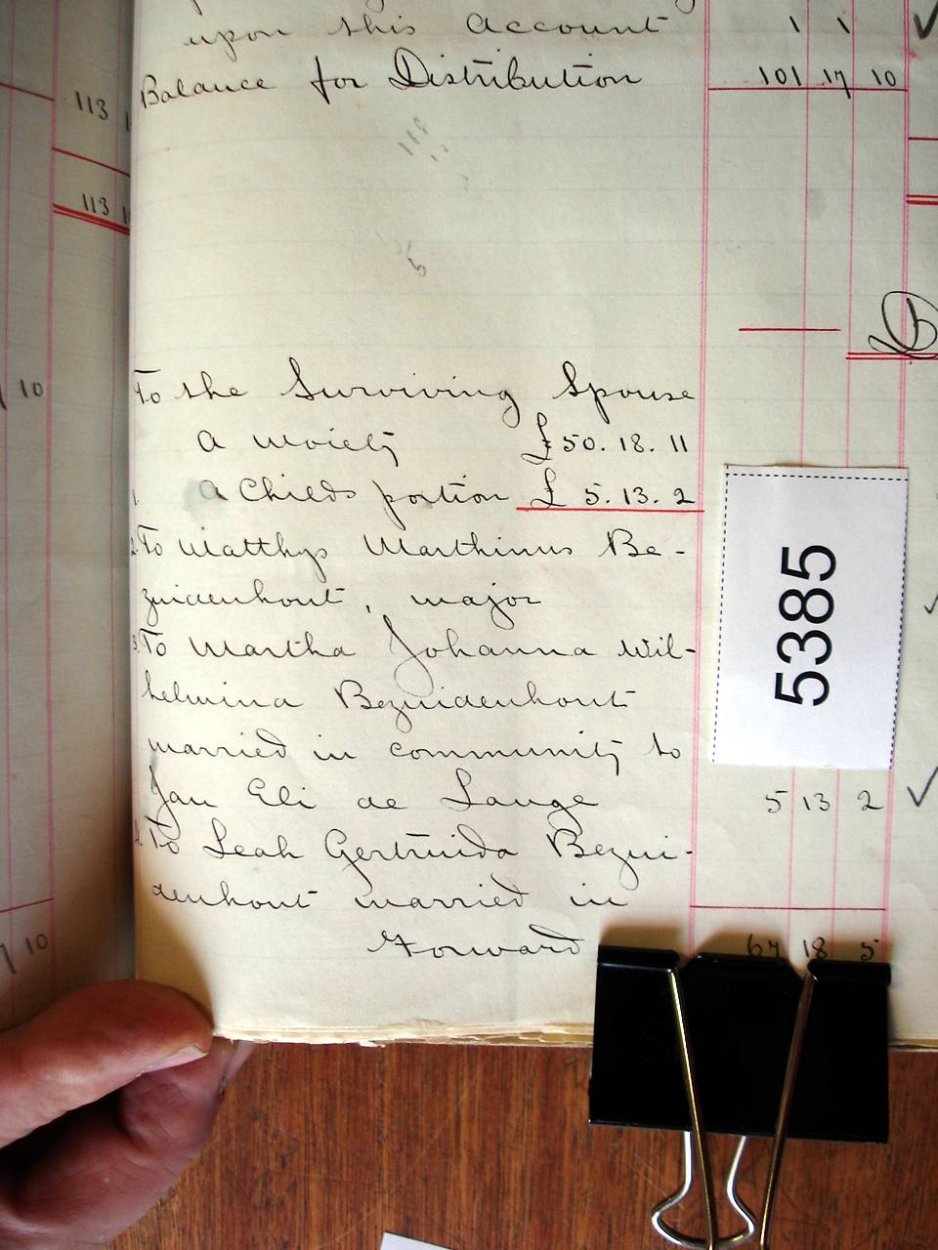 upon this Account 1 1
Balance for Distribution 101 17 10
113
118
113
5
10
To the Surviving Spouse
a moiety £50. 18. 11
1. a Childs portion £ 5. 13. 2
2. To Matthys Marthinus Be-
zuidenhout, major
3. To Martha Johanna Wil-
helmina Bezuidenhout
married in community to
Jan Eli de Lange 5 13 2
4. To Leah Gertruida Bezui-
denhout married in
Forward 67 18 5
10
5385